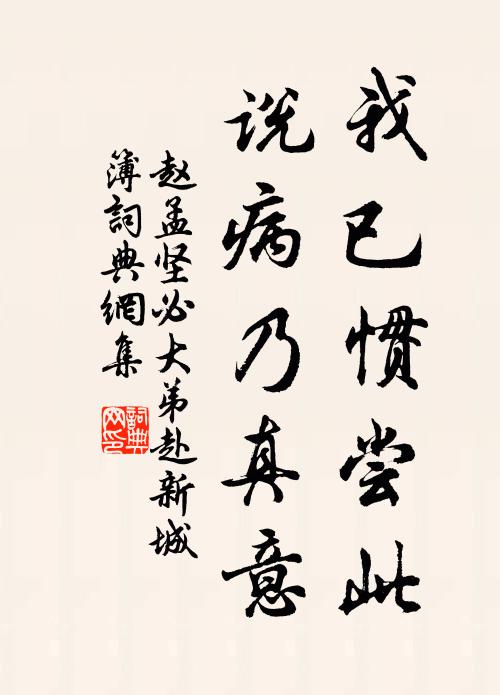 我已惯尝此
说病乃真意
赵孟坚必大弟赴新城
簿詞典網集
詞典網印